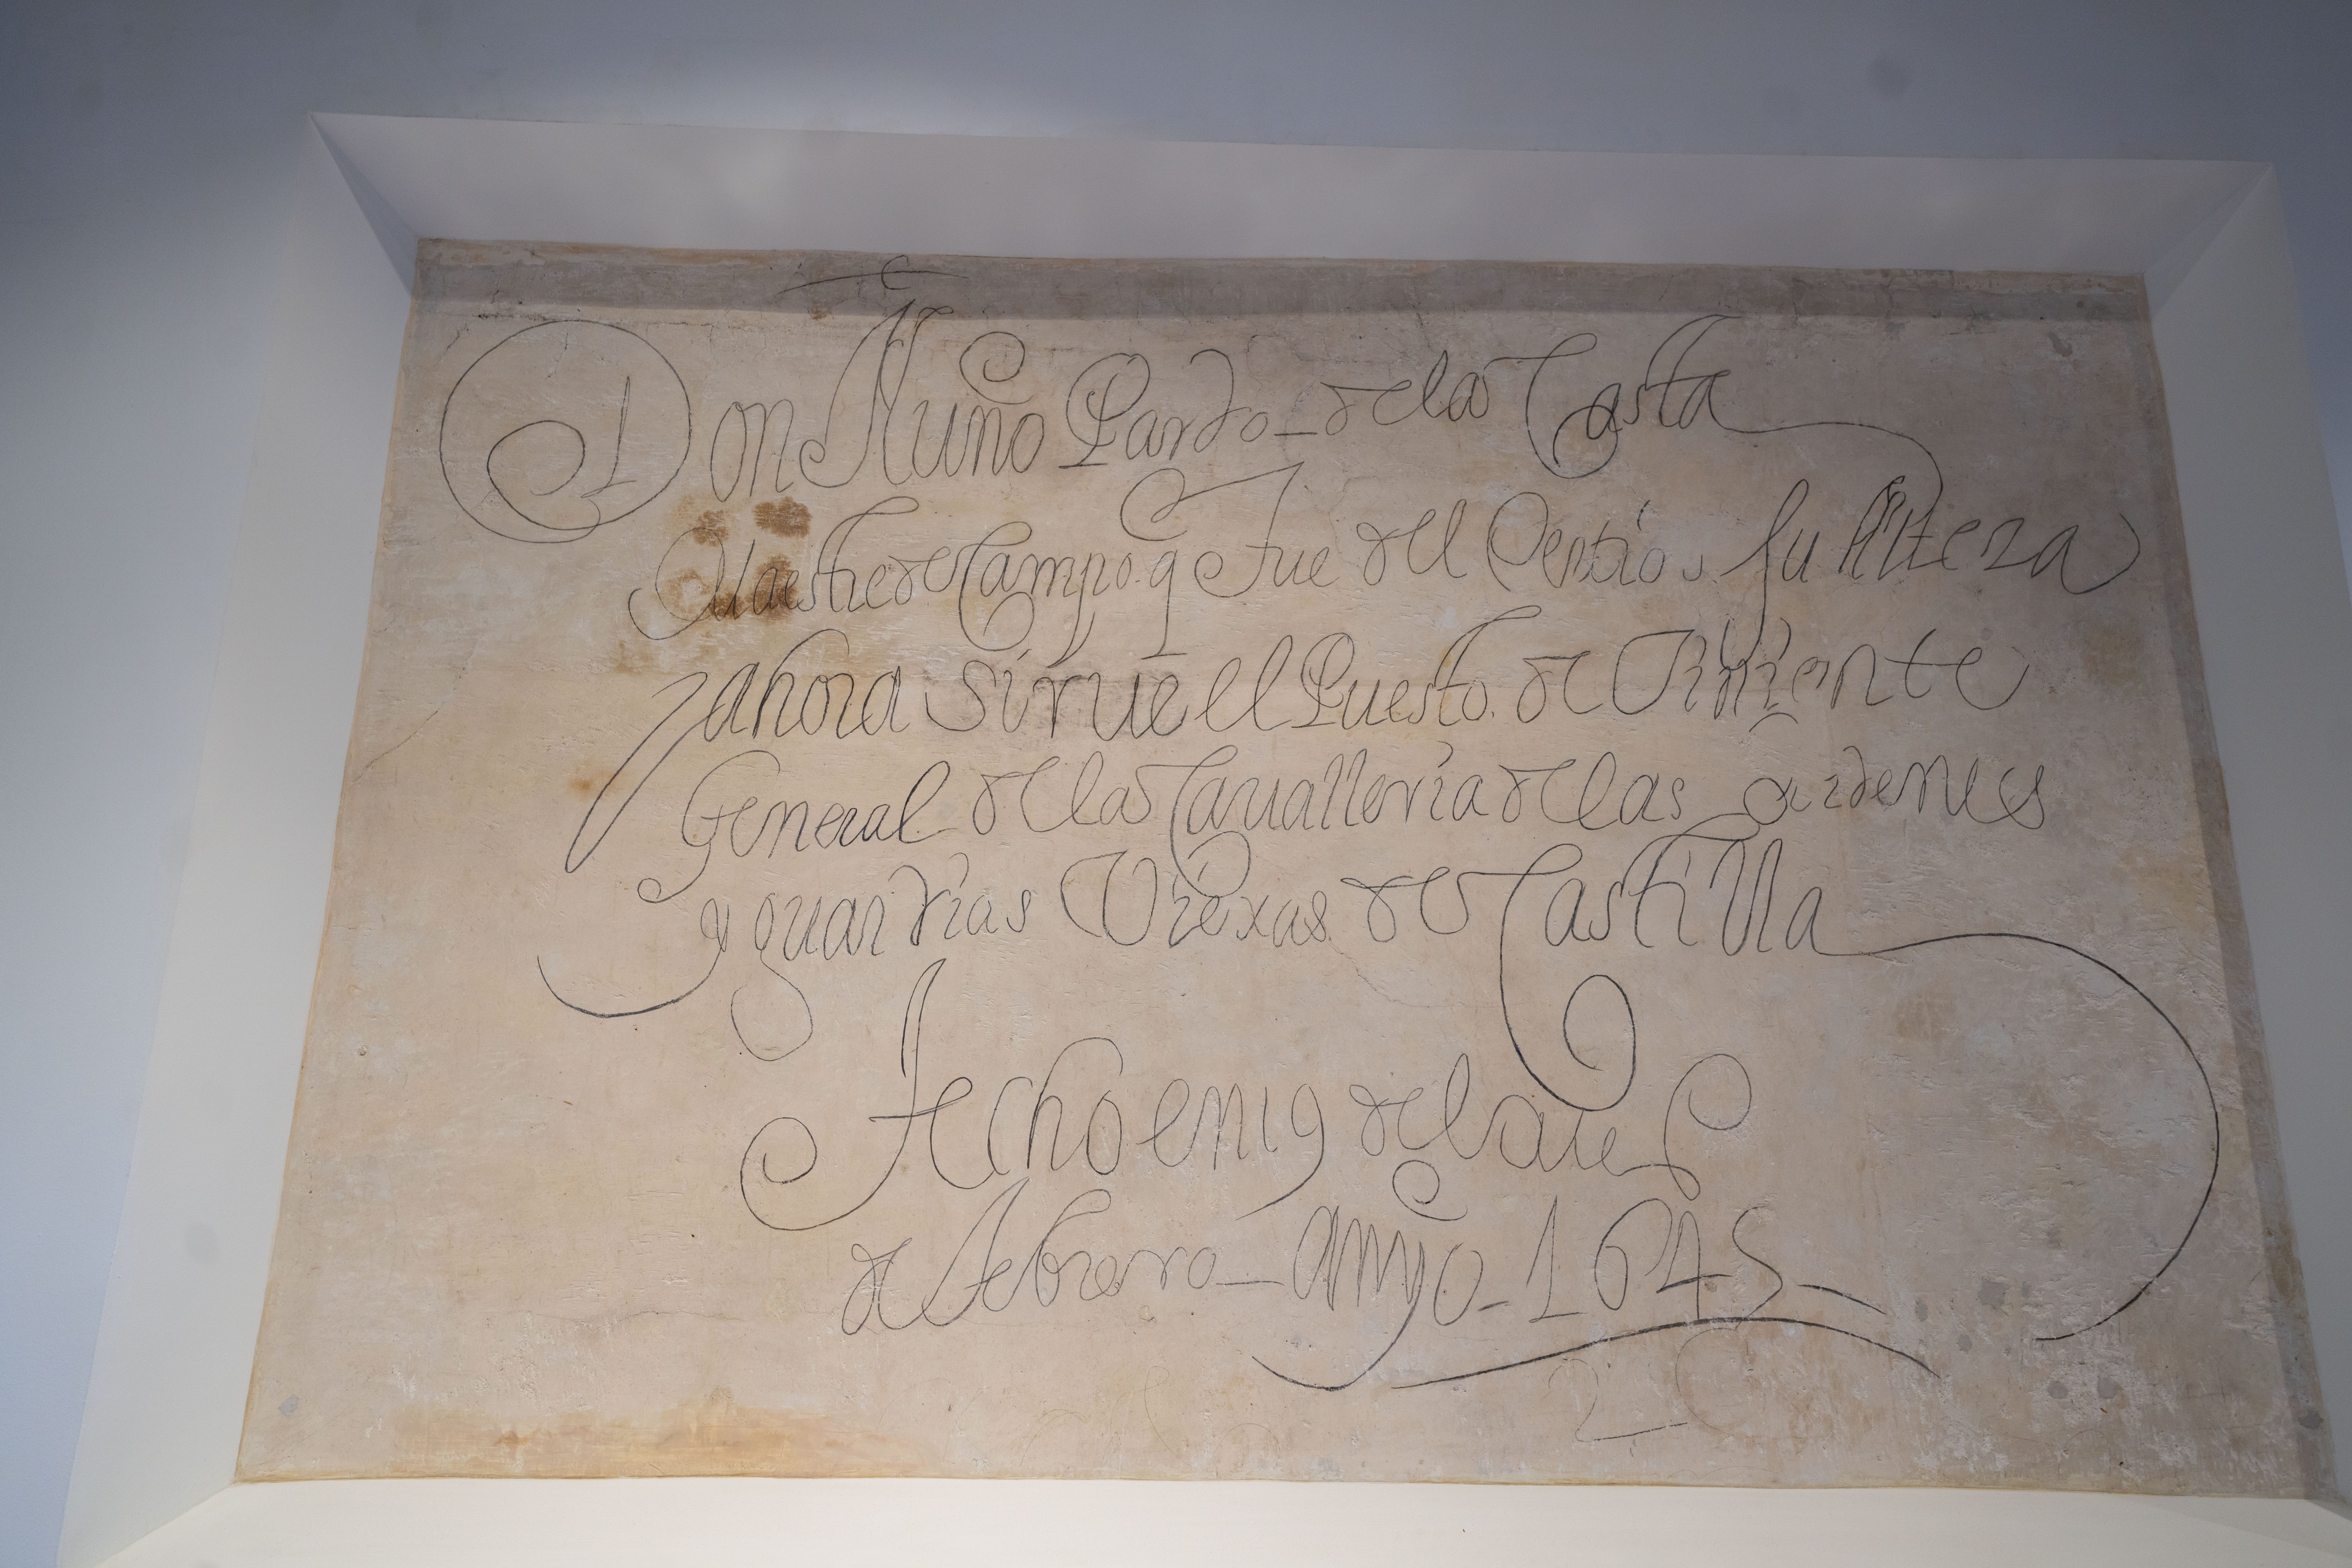 Don Nuño Pardo de la Casta
Maestre de Campo q fue del su Alteza
y ahora sirue el Puesto de Teniente
General de la Caualleria de las ordenes
y guardias Viexas de Castilla
fecho en 19 del
de febrero año 1645